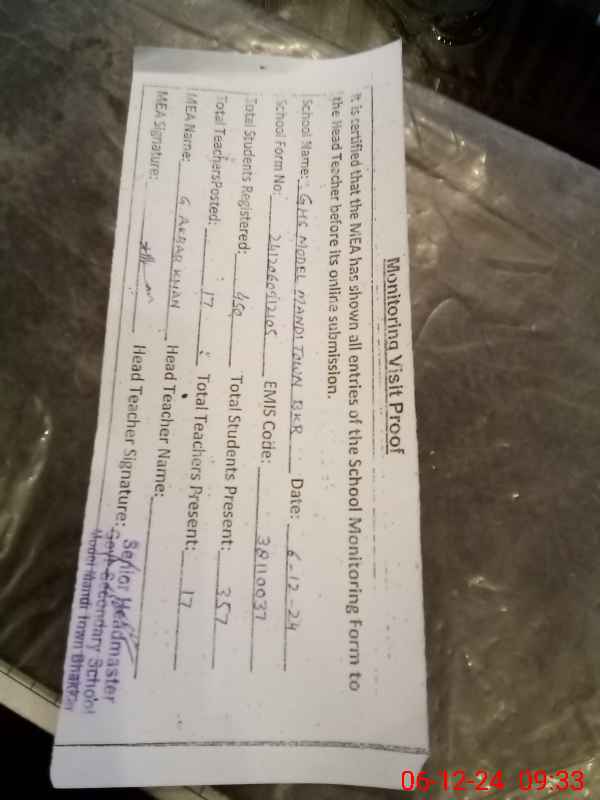 Monitoring Visit Proof
It is certified that the MEA has shown all entries of the School Monitoring Form to
the Head Teacher before its online submission.
School Name: GHS MODEL MANDI TOWN BKR Date: 6-12-24
School Form No: EMIS Code: 38110037
Total Students Registered: 450 Total Students Present: 357
Total TeachersPosted: 17 Total Teachers Present: 17
MEA Name: G AKBAR KHAN Head Teacher Name:
MEA Signature: Head Teacher Signature:
Senior Headmaster
Govt. Secondary School
Model Mandi Town Bhakkar
06-12-24 09:33